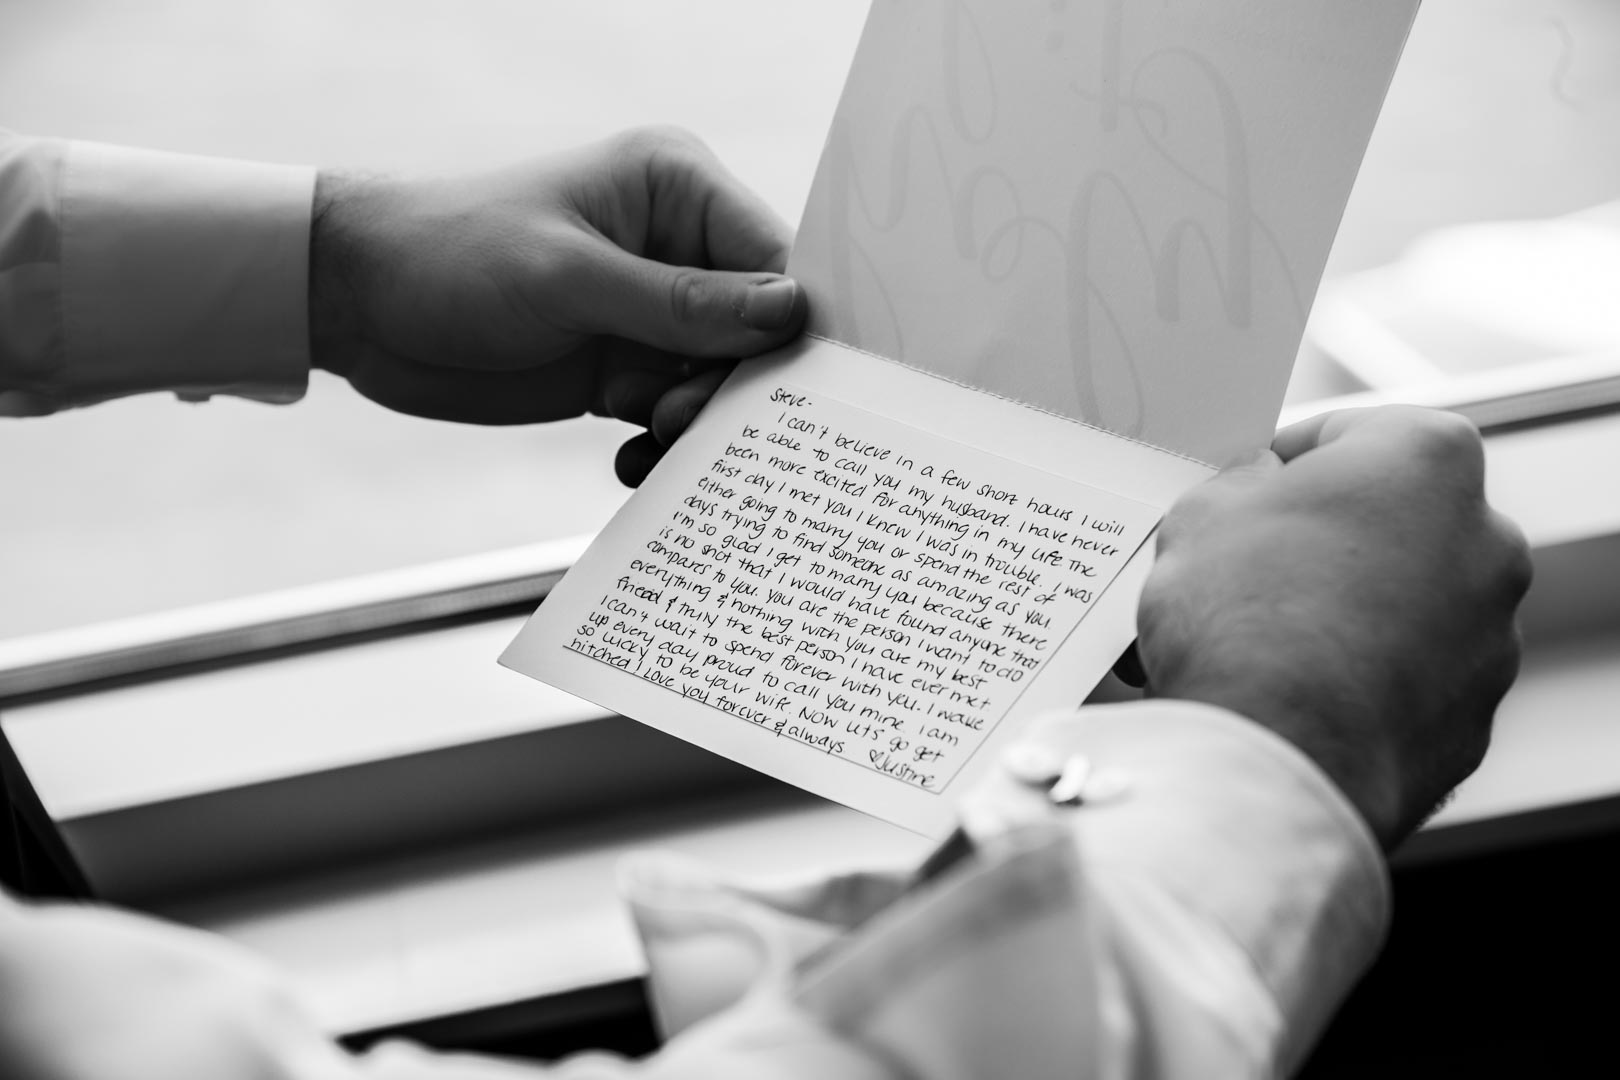 Steve-
I can't believe in a few short hours I will
be able to call you my husband. I have never
been more excited for anything in my life The
first day I met you I knew I was in trouble. I was
either going to marry you or spend the rest of
days trying to find someone as amazing as you.
I'm so glad I get to marry you because there
is no shot that I would have found anyone that
compares to you. You are the person I want to do
everything & nothing with you are my best
friend & truly the best person I have ever met
I can't wait to spend forever with you. I wake
up every day proud to call you mine. I am
so lucky to be your wife. Now let's go get
hitched I love you forever & always. ♡Justine